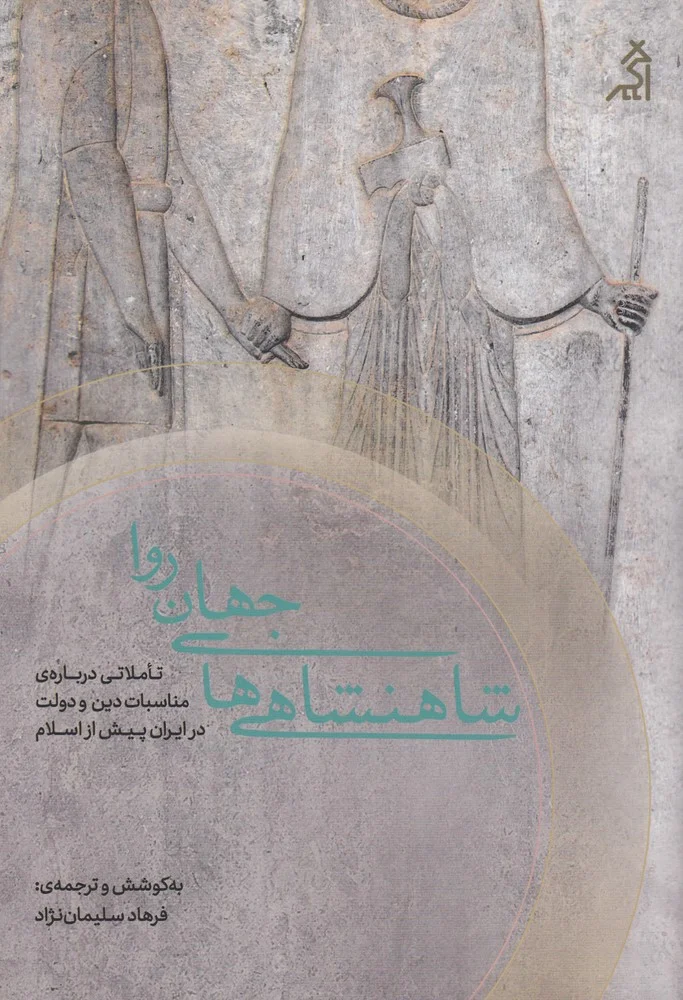 شاهنشاهی‌های
جهان
روا
تأملاتی درباره‌ی
مناسبات دین و دولت
در ایران پیش از اسلام
به‌کوشش و ترجمه‌ی:
فرهاد سلیمان‌نژاد